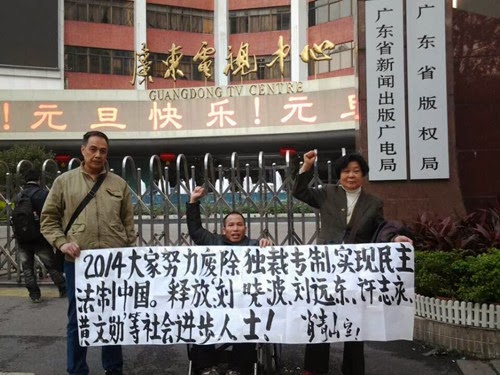 廣東電視中心
GUANGDONG TV CENTRE
!元旦快乐!元旦
广东省新闻出版广电局
广东省版权局
2014大家努力废除独裁专制,实现民主
法制中国。释放刘晓波、刘远东、许志永、
黄文勋等社会进步人士!
肖青山宣!